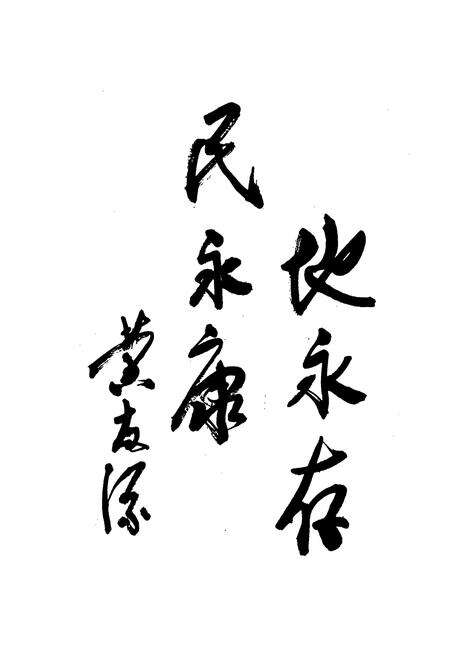 地永存
民永康
黄友源